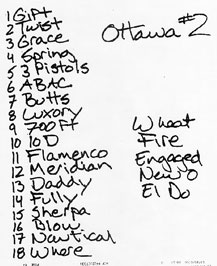 Ottawa #2
1 Gift
2 Twist
3 Grace
4 Spring
5 3 Pistols
6 ABAC
7 Butts
8 Luxury
9 700 Ft
10 IOD
11 Flamenco
12 Meridian
13 Daddy
14 Fully
15 Sherpa
16 Blow
17 Nautical
18 Where
Wheat
Fire
Engaged
New O
El Do